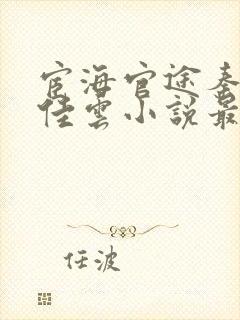 宦海官途秦
佳雲小説最
任波